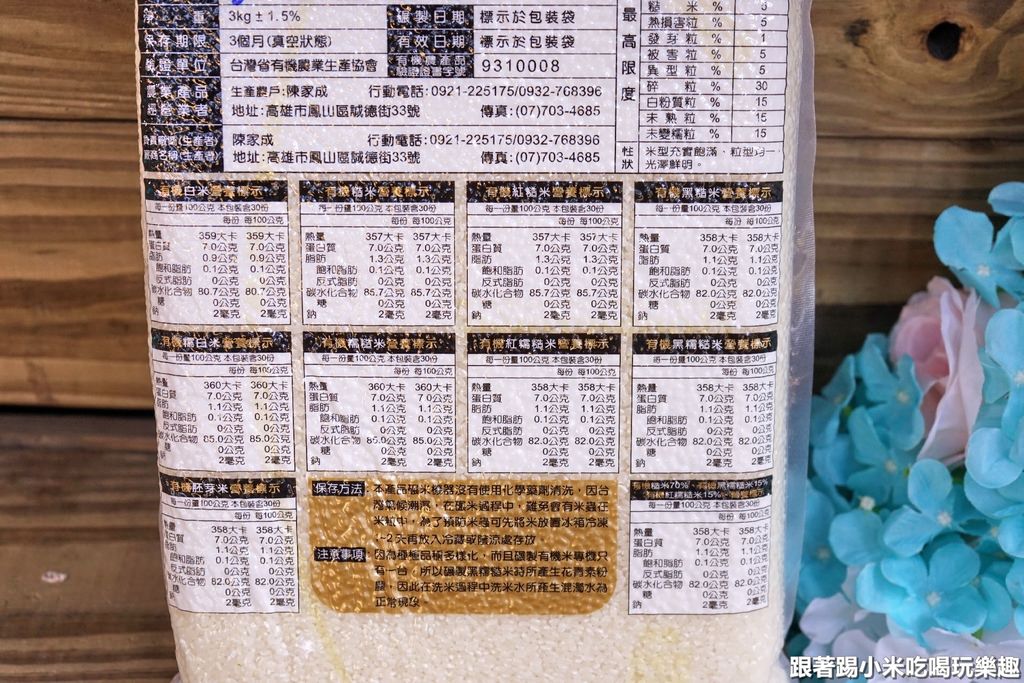 淨 重 3kg ± 1.5% 碾製日期 標示於包裝袋
保存期限 3個月(真空狀態) 有效日期 標示於包裝袋
驗證單位 台灣省有機農業生產協會 有機農產品驗證證書字號 9310008
農業產品經營業者 生產農戶:陳家成 行動電話:0921-225175/0932-768396
地址:高雄市鳳山區誠德街33號 傳真:(07)703-4685
陳家成 行動電話:0921-225175/0932-768396
地址:高雄市鳳山區誠德街33號 傳真:(07)703-4685
最高限度
糙 米 % 5
熱損害粒 % 5
發芽粒 % 1
被害粒 % 5
異型粒 % 5
碎 粒 % 30
白粉質粒 % 15
未熟粒 % 15
未變糯粒 % 15
性狀 米型充實飽滿、粒型均一
光澤鮮明。
有機白米營養標示
每一份量100公克 本包裝含30份
每份 每100公克
熱量 359大卡 359大卡
蛋白質 7.0公克 7.0公克
脂肪 0.9公克 0.9公克
飽和脂肪 0.1公克 0.1公克
反式脂肪 0公克 0公克
碳水化合物 80.7公克 80.7公克
糖 0公克 0公克
鈉 2毫克 2毫克
有機糙米營養標示
每一份量100公克 本包裝含30份
每份 每100公克
熱量 357大卡 357大卡
蛋白質 7.0公克 7.0公克
脂肪 1.3公克 1.3公克
飽和脂肪 0.1公克 0.1公克
反式脂肪 0公克 0公克
碳水化合物 85.7公克 85.7公克
糖 0公克 0公克
鈉 2毫克 2毫克
有機紅糙米營養標示
每一份量100公克 本包裝含30份
每份 每100公克
熱量 357大卡 357大卡
蛋白質 7.0公克 7.0公克
脂肪 1.3公克 1.3公克
飽和脂肪 0.1公克 0.1公克
反式脂肪 0公克 0公克
碳水化合物 85.7公克 85.7公克
糖 0公克 0公克
鈉 2毫克 2毫克
有機黑糙米營養標示
每一份量100公克 本包裝含30份
每份 每100公克
熱量 358大卡 358大卡
蛋白質 7.0公克 7.0公克
脂肪 1.1公克 1.1公克
飽和脂肪 0.1公克 0.1公克
反式脂肪 0公克 0公克
碳水化合物 82.0公克 82.0公克
糖 0公克 0公克
鈉 2毫克 2毫克
有機糯白米營養標示
每一份量100公克 本包裝含30份
每份 每100公克
熱量 360大卡 360大卡
蛋白質 7.0公克 7.0公克
脂肪 1.1公克 1.1公克
飽和脂肪 0.1公克 0.1公克
反式脂肪 0公克 0公克
碳水化合物 85.0公克 85.0公克
鈉 2毫克 2毫克
有機糯糙米營養標示
每一份量100公克 本包裝含30份
每份 每100公克
熱量 360大卡 360大卡
蛋白質 7.0公克 7.0公克
脂肪 1.1公克 1.1公克
飽和脂肪 0.1公克 0.1公克
反式脂肪 0公克 0公克
碳水化合物 85.0公克 85.0公克
鈉 2毫克 2毫克
有機紅糯糙米營養標示
每一份量100公克 本包裝含30份
每份 每100公克
熱量 358大卡 358大卡
蛋白質 7.0公克 7.0公克
脂肪 1.1公克 1.1公克
飽和脂肪 0.1公克 0.1公克
反式脂肪 0公克 0公克
碳水化合物 82.0公克 82.0公克
鈉 2毫克 2毫克
有機黑糯糙米營養標示
每一份量100公克 本包裝含30份
每份 每100公克
熱量 358大卡 358大卡
蛋白質 7.0公克 7.0公克
脂肪 1.1公克 1.1公克
飽和脂肪 0.1公克 0.1公克
反式脂肪 0公克 0公克
碳水化合物 82.0公克 82.0公克
鈉 2毫克 2毫克
有機胚芽米營養標示
每一份量100公克 本包裝含30份
每份 每100公克
熱量 358大卡 358大卡
蛋白質 7.0公克 7.0公克
脂肪 1.1公克 1.1公克
飽和脂肪 0公克 0公克
反式脂肪 0公克 0公克
碳水化合物 82.0公克 82.0公克
糖 0公克 0公克
鈉 2毫克 2毫克
保存方法:本產品碾米機器沒有使用化學藥劑清洗，因台
灣氣候潮濕，在碾米過程中，難免會有米蟲在
米粒中，為了預防米蟲可先將米放置冰箱冷凍
1~2天再放入冷藏或陰涼處存放
注意事項:因為種植品種多樣化，而且碾製有機米專機只
有一台，所以碾製黑糯糙米時所產生花青素粉
體，因此在洗米過程中洗米水所產生混濁水為
正常現象。
有機糙米70%、有機黑糯糙米15%
有機紅糯糙米15% 營養標示
每一份量100公克 本包裝含30份
每份 每100公克
熱量 358大卡 358大卡
蛋白質 7.0公克 7.0公克
脂肪 1.1公克 1.1公克
反式脂肪 0公克 0公克
碳水化合物 82.0公克 82.0公克
糖 0公克 0公克
鈉 2毫克 2毫克
跟著踢小米吃喝玩樂趣